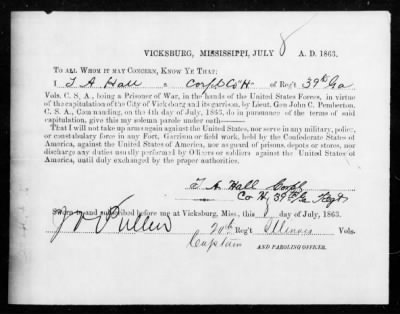 VICKSBURG, MISSISSIPPI, JULY 8 A. D. 1863.
TO ALL WHOM IT MAY CONCERN, KNOW YE THAT:
I T A Hall a Corpl Co "H" of Reg't 39th Ga
Vols. C. S. A., being a Prisoner of War, in the hands of the United States Forces, in virtue
of the capitulation of the City of Vicksburg and its garrison, by Lieut. Gen John C. Pemberton,
C. S. A., Commanding, on the 4th day of July, 1863, do in pursuance of the terms of said
capitulation, give this my solemn parole under oath—
That I will not take up arms again against the United States, nor serve in any military, police,
or constabulary force in any Fort, Garrison or field work, held by the Confederate States of
America, against the United States of America, nor as guard of prisons, depots or stores, nor
discharge any duties usually performed by Officers or soldiers against the United States of
America, until duly exchanged by the proper authorities.
T. A. Hall Corpl
Co H, 39 Ga Regt
Sworn to and subscribed before me at Vicksburg, Miss., this 8 day of July, 1863.
Pullen 20th Reg't Illinois Vols.
Captain AND PAROLING OFFICER.